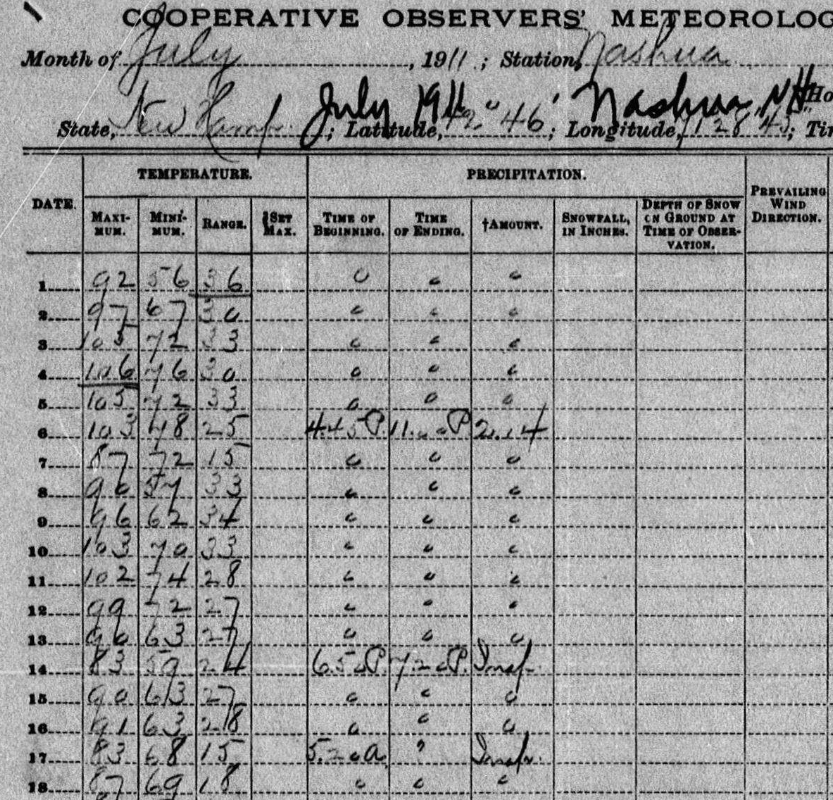 COOPERATIVE OBSERVERS' METEOROLOG
Month of July, 1911; Station, Nashua
July 1911 Nashua NH
State, New Hamp.; Latitude, 42° 46'; Longitude, 71° 28' 45"; Tim
TEMPERATURE. PRECIPITATION.
DATE. MAXI-MUM. MINI-MUM. RANGE. ‡SET MAX. TIME OF BEGINNING. TIME OF ENDING. †AMOUNT. SNOWFALL, IN INCHES. DEPTH OF SNOW ON GROUND AT TIME OF OBSERVATION. PREVAILING WIND DIRECTION.
1 92 56 36 0 0 0
2 97 67 30 0 0 0
3 105 72 33 0 0 0
4 106 76 30 0 0 0
5 105 72 33 0 0 0
6 103 78 25 4.45 P 11.00 P 2.14
7 87 72 15 0 0 0
8 90 57 33 0 0 0
9 96 62 34 0 0 0
10 103 70 33 0 0 0
11 102 74 28 0 0 0
12 99 72 27 0 0 0
13 90 63 27 0 0 0
14 83 59 24 6.50 P. 7.20 P. Inap.
15 90 63 27 0 0 0
16 91 63 28 0 0 0
17 83 68 15 5.20 a ? Inap.
18 87 69 18 0 0 0